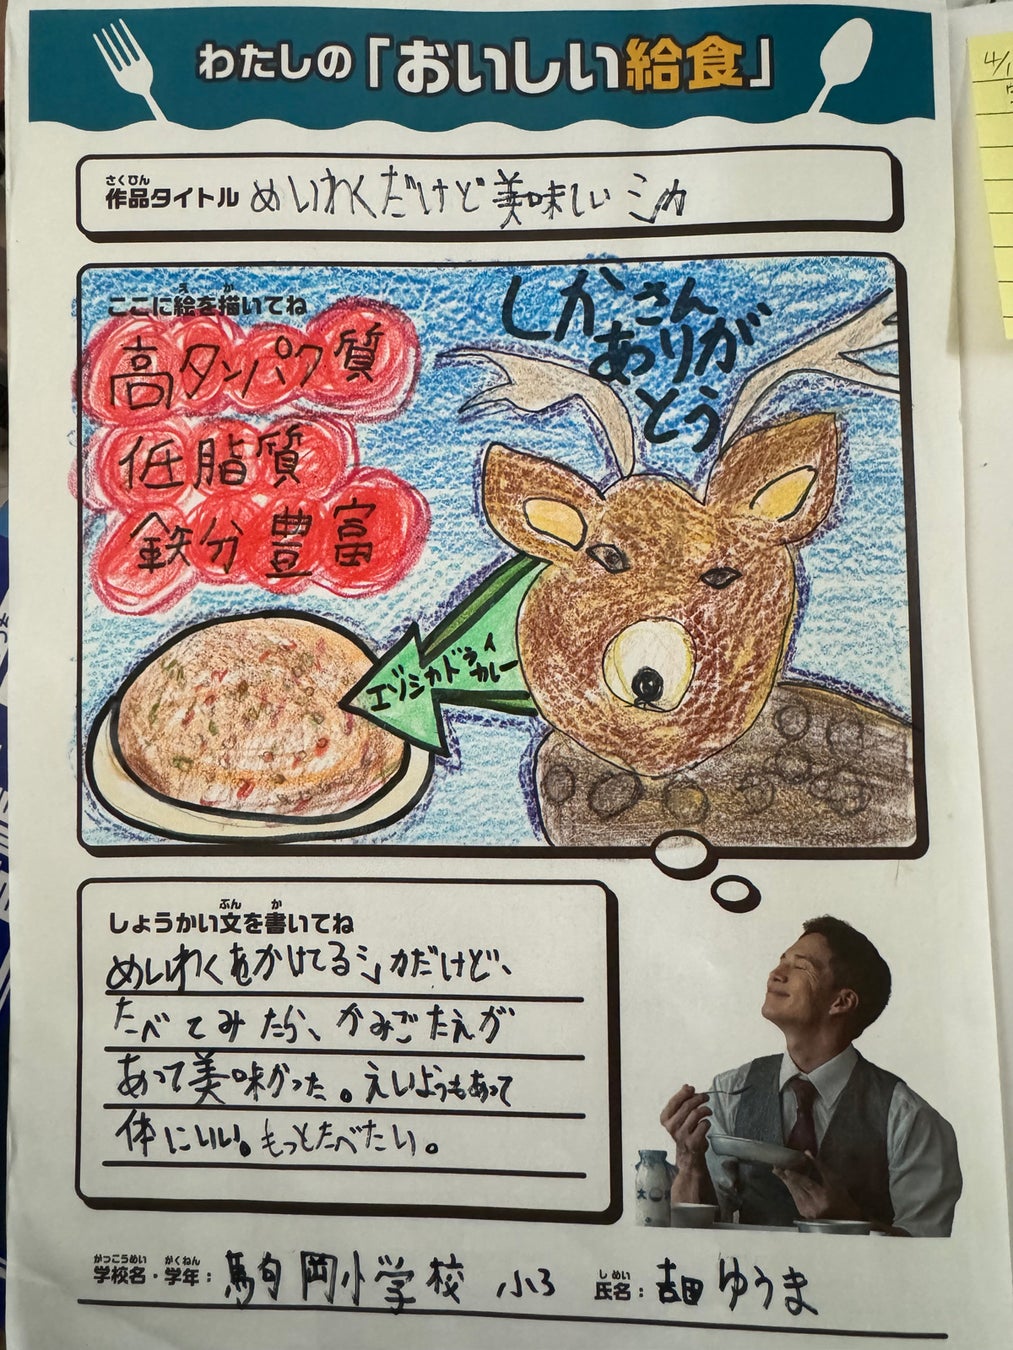 わたしの「おいしい給食」
さくひん
作品タイトル めいわくだけど美味しいシカ
え か
ここに絵を描いてね
しかさん
ありがとう
高タンパク質
低脂質
鉄分豊富
エゾシカドライカレー
ぶん か
しょうかい文を書いてね
めいわくをかけてるシカだけど、
たべてみたら、かみごたえが
あって美味かった。えいようもあって
体にいい。もっとたべたい。
がっこうめい がくねん
学校名・学年：駒岡小学校 小3
しめい
氏名：吉田ゆうま
4/1